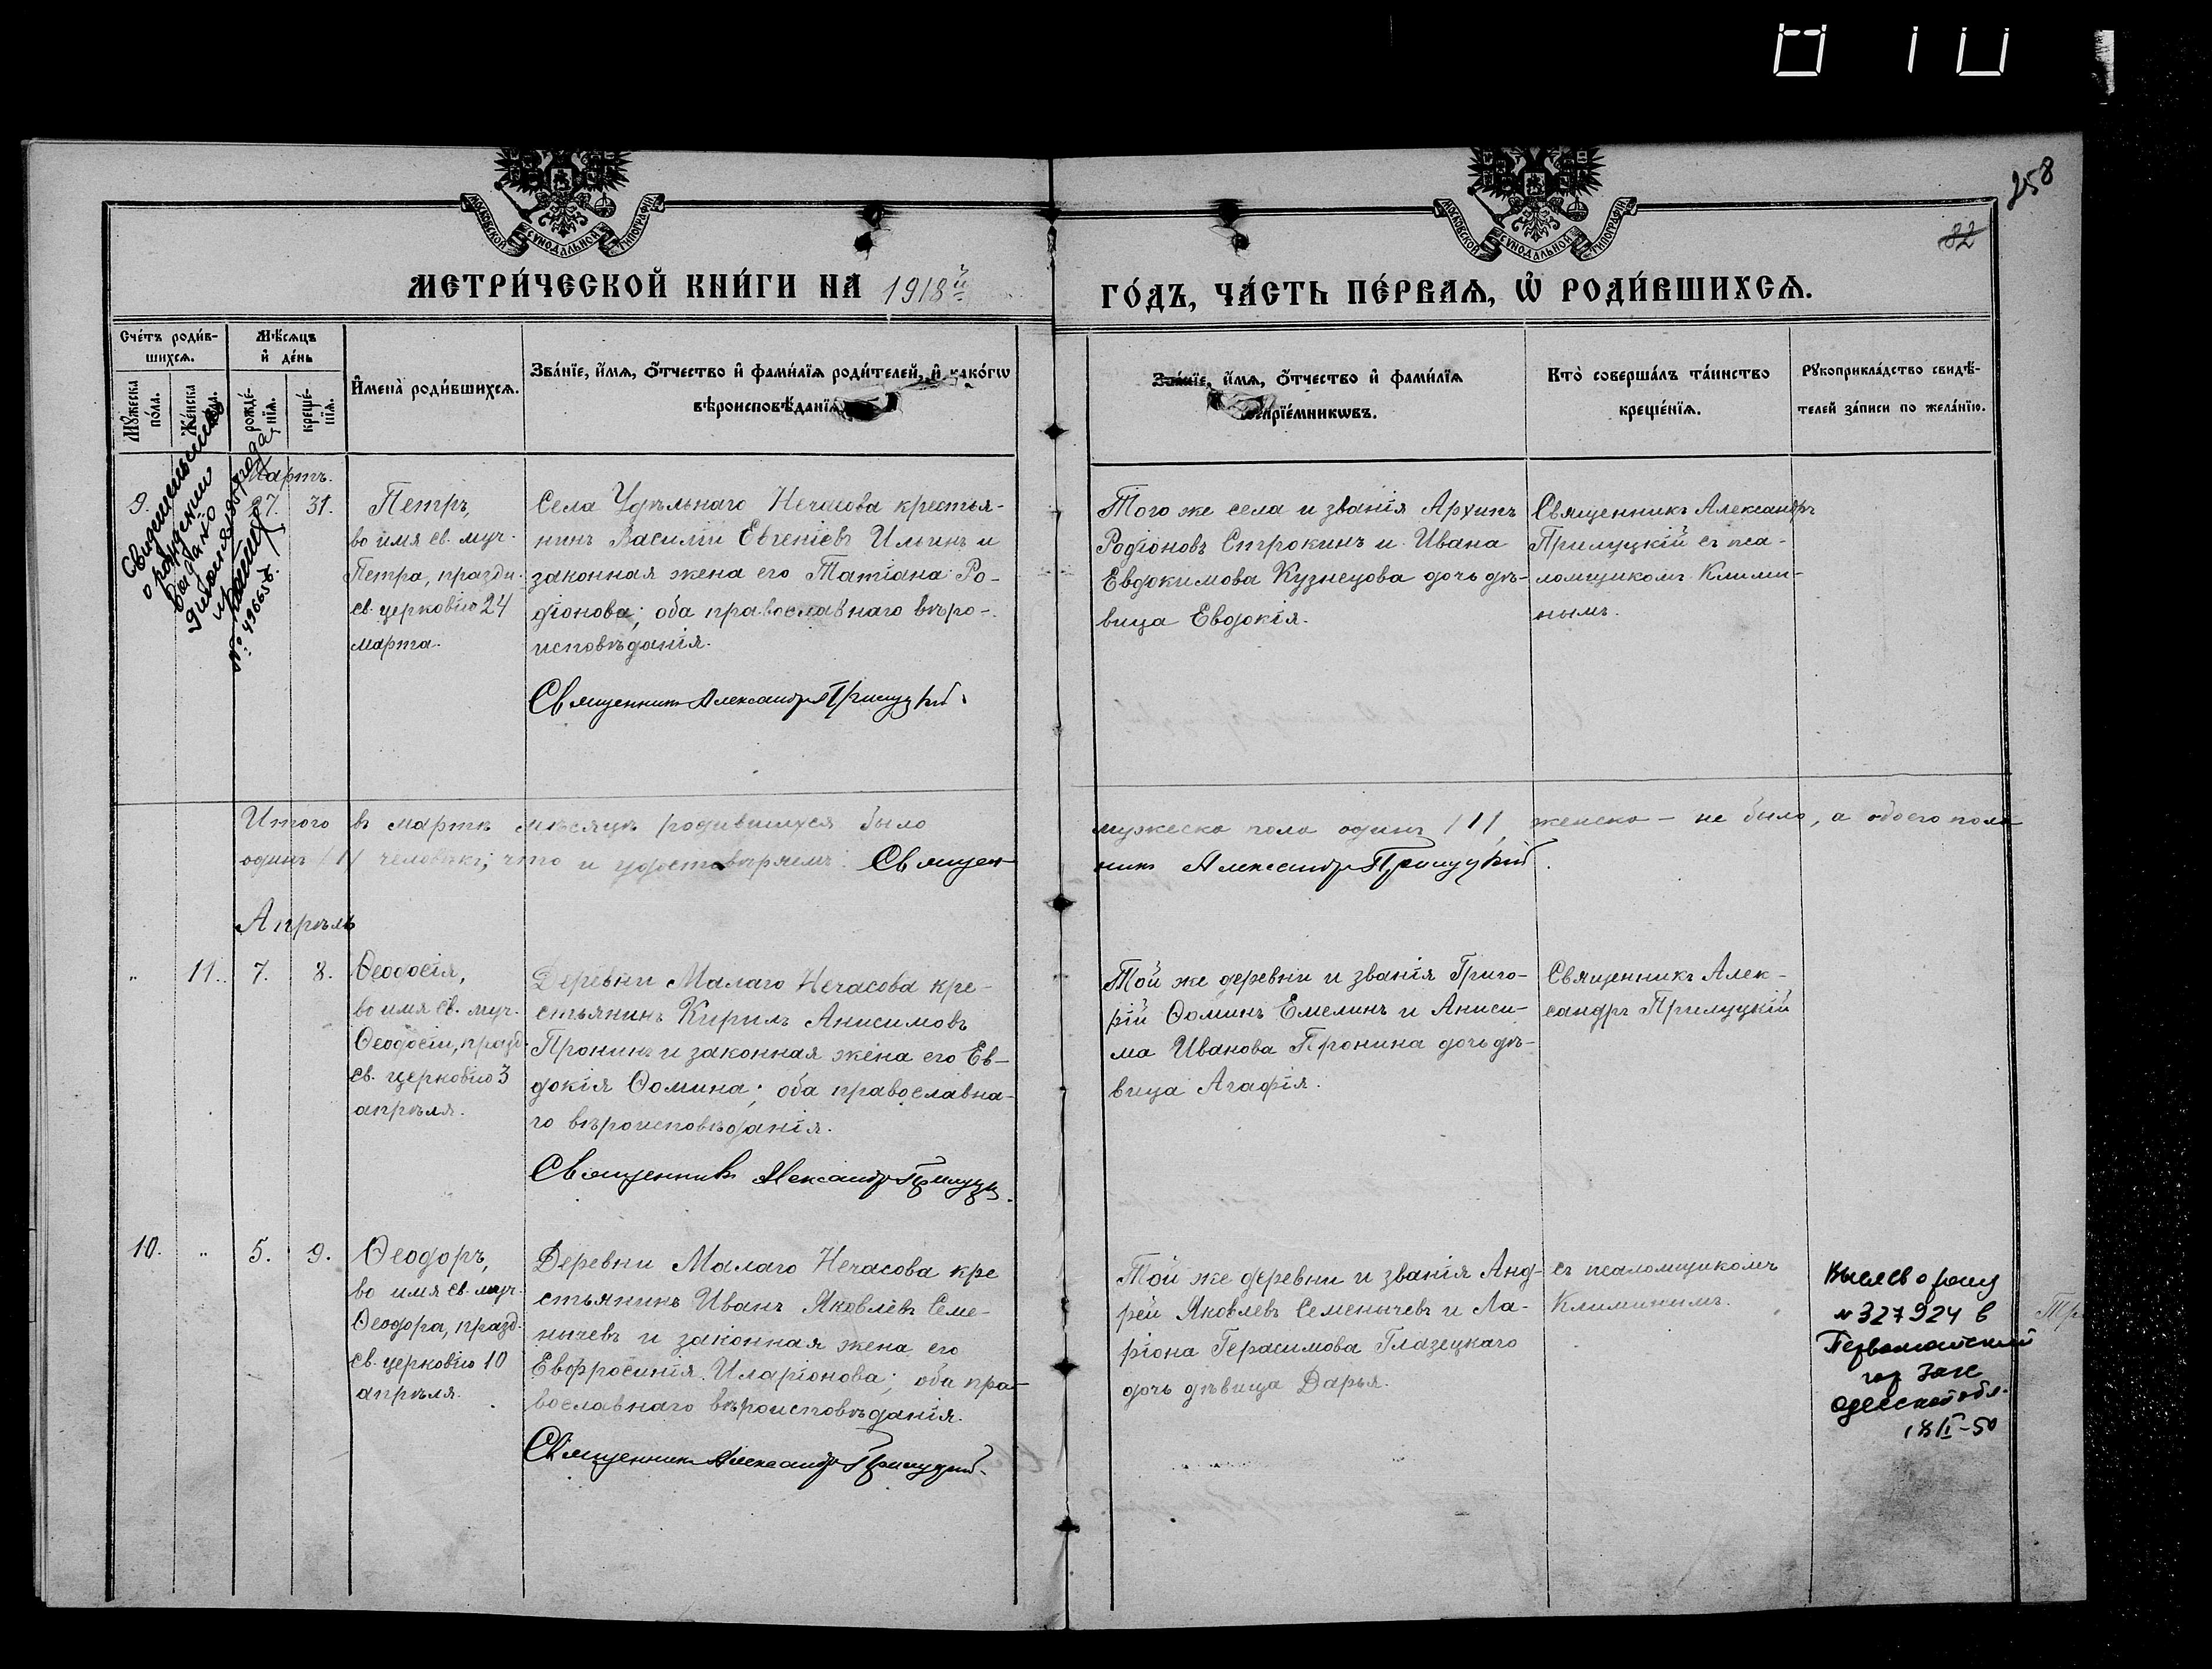 258
82
МОСКОВСКОЙ СѴНОДАЛЬНОЙ ТИПОГРАФІИ
МОСКОВСКОЙ СѴНОДАЛЬНОЙ ТИПОГРАФІИ
МЕТРИ́ЧЕСКОЙ КНИ́ГИ НА 1918й
ГО́ДЪ, ЧА́СТЬ ПЕ́РВАѦ, Ѡ҆ РОДИ́ВШИХСѦ.
Сче́тъ роди́в-
шихсѧ.
Мꙋ́жеска
по́ла.
Же́нска
Мѣ́сѧцъ
и҆ де́нь
рожде́-
нїѧ.
креще́-
нїѧ.
И҆мена̀ роди́вшихсѧ.
Зва́нїе, и҆́мѧ, ѻ҆́тчество и҆ фами́лїѧ роди́телей, и҆ како́гѡ
вѣроисповѣ́данїѧ
Зва́нїе, и҆́мѧ, ѻ҆́тчество и҆ фами́лїѧ
воспрїе́мникѡвъ.
Кто̀ соверша́лъ та́инство
креще́нїѧ.
Рꙋкоприкла́дство свидѣ́-
телей за́писи по жела́нїю.
Свидетельство
о рождении
выдано
№ 49665
Мартъ.
9.
27.
31.
Петръ,
во имя св. муч.
Петра, праздн.
св. церковію 24
марта.
Села Удѣльнаго Нечасова крестья-
нинъ Василій Евгеніевъ Ильинъ и
законная жена его Татіана Ро-
діонова; оба православнаго вѣро-
исповѣданія.
Священникъ Александръ Прилуцкій.
Того же села и званія Архипъ
Родіоновъ Строкинъ и Ивана
Евдокимова Кузнецова дочь дѣ-
вица Евдокія.
Священникъ Александръ
Прилуцкій съ пса-
ломщикомъ Клими-
нымъ.
Итого въ мартѣ мѣсяцѣ родившихся было мужеска пола одинъ /1/, женска – не было, а обоего пола
одинъ /1/ человѣкъ; что и удостовѣряемъ. Священникъ Александръ Прилуцкій.
Апрѣль
„
11.
7.
8.
Ѳеодосія,
во имя св. муч.
Ѳеодосіи, празд.
св. церковію 3
апрѣля.
Деревни Малаго Нечасова кре-
стьянинъ Кирилъ Анисимовъ
Пронинъ и законная жена его Ев-
докія Ѳомина; оба православна-
го вѣроисповѣданія.
Священникъ Александръ Прилуцкій.
Той же деревни и званія Григо-
рій Ѳоминъ Емелинъ и Аниси-
ма Иванова Пронина дочь дѣ-
вица Агафія.
Священникъ Алек-
сандръ Прилуцкій
10.
„
5.
9.
Ѳеодоръ,
во имя св. муч.
Ѳеодора, празд.
св. церковію 10
апрѣля.
Деревни Малаго Нечасова кре
стьянинъ Иванъ Яковлевъ Семе-
нычевъ и законная жена его
Евфросинія Иларіонова; оба пра-
вославнаго вѣроисповѣданія.
Священникъ Александръ Прилуцкій.
Той же деревни и званія Анд-
рей Яковлевъ Семенычевъ и Ла-
ріона Герасимова Глазецкаго
дочь дѣвица Дарья.
съ псаломщикомъ
Климинымъ.
№ 327924 в
Первомайский
гор Загс
Одесской обл.
18/I-50